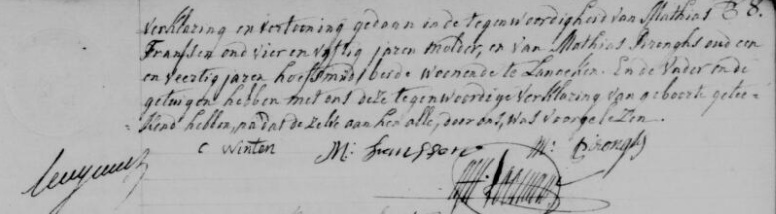 verklaring en vertooning gedaan in de tegenwoordigheid van Mathias B 8.
Franssen oud vier en vyftig jaren molder, en van Mathias Pirenghs oud een
en veertig jaren hoefsmid, beide woonende te Lanaeken. En de Vader en de
getuigen hebben met ons deze tegenwoordige verklaring van geboorte getee-
kend hebben, na dat dezelve aan hen alle, door ons, was voorgelezen.
C Winten M: Franssen M: Pirenghs